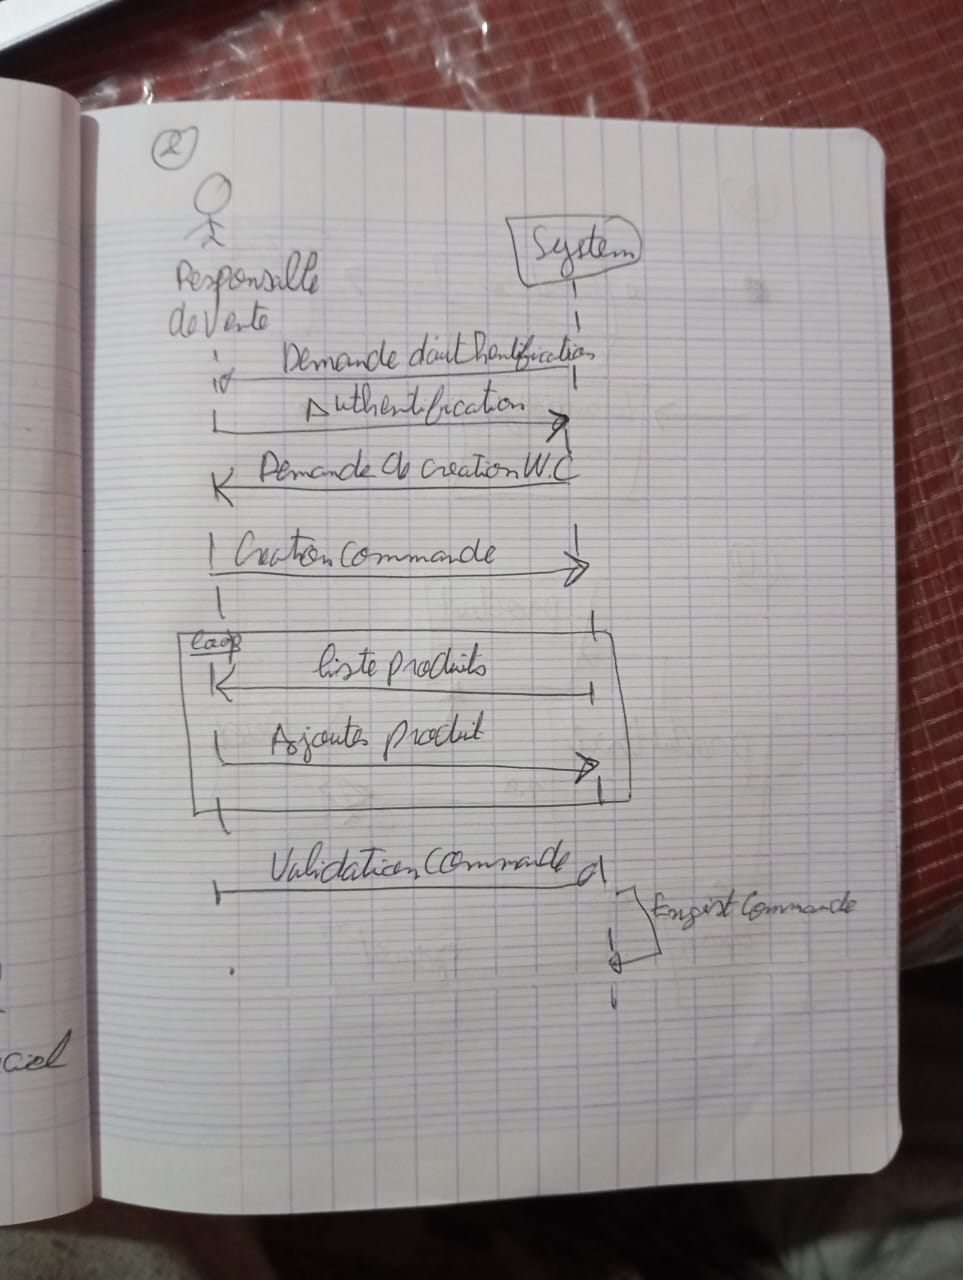 2
Responsable
de Vente
System
Demande d'authentification
Authentification
Demande de creation N.C
Creation Commande
Loop
liste produits
Ajouter produit
Validation Commande
Engist Commande
ciel